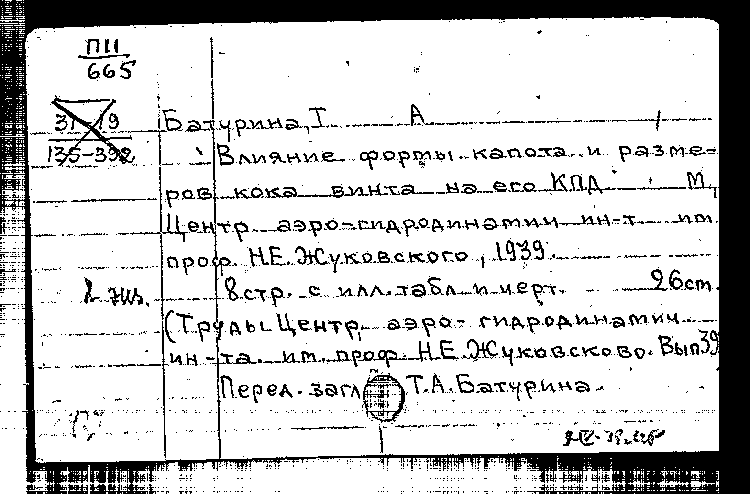 ПII
665
31-19
135-392
Батурина, Т А
Влияние формы капота и разме-
ров кока винта на его КПД М,
Центр аэро-гидродинамич ин-т им
проф. Н.Е. Жуковского, 1939.
2 экз. 8 стр. с илл. табл и черт. 26 ст.
(Труды Центр. аэро-гидродинамич
ин-та. им. проф. Н.Е. Жуковсково. Вып 39
Перед. загл Т.А. Батурина.